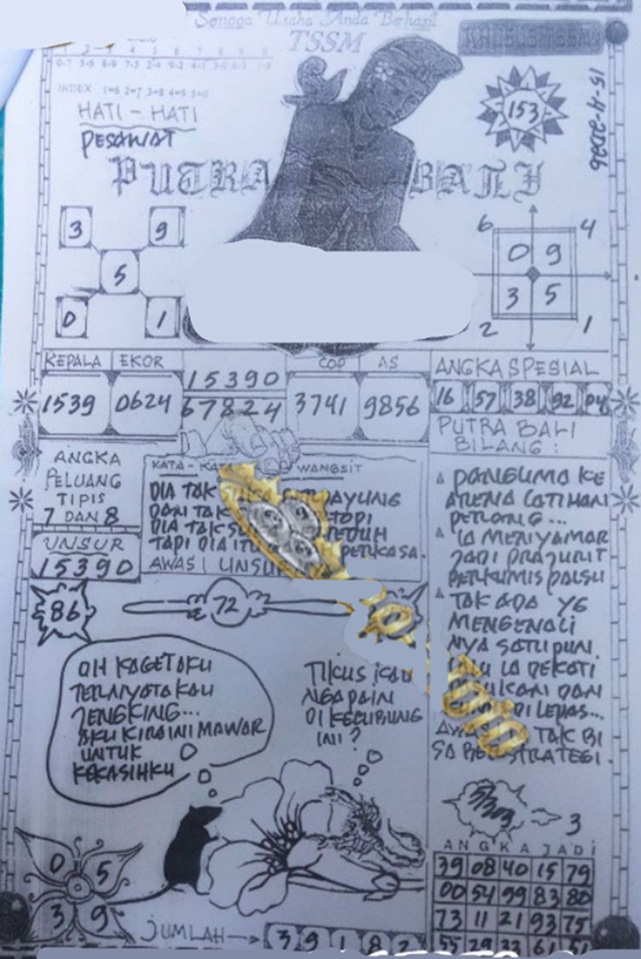 Semoga Usaha Anda Berhasil
TSSM
1 2 3 4 5 6 7 8 9 0
INDEX 1=6 2=7 3=8 4=9 5=0
HATI - HATI
PESAWAT
153
15-4-2026
PUTRA BALI
3 9
5
0 1
6 4
0 9
3 5
2 1
KEPALA EKOR
1539 0624
15390
67824
COP AS
3741 9856
ANGKA SPESIAL
16 57 38 92 04
ANGKA
PELUANG
TIPIS
7 DAN 8
UNSUR
15390
KATA - WANGSIT
DIA TAK PAYUNG
DAN TAK TOPI
DIA TAK TEDUH
TAPI DIA ITU PERKASA.
AWAS! UNSUR
PUTRA BALI
BILANG :
PANGLIMA KE
ARENA LATIHAN
PERANG...
IA MENYAMAR
JADI PRAJURIT
BERKUMIS PALSU
TAK ADA YG
MENGENALI
NYA SATUPUN.
IA DEKATI
DAN
DI LEPAS...
TAK BI
SA STRATEGI.
86
72
OH KAGET AKU
TERNYATA KAU
JENGKING...
AKU KIRA INI MAWAR
UNTUK
KEKASIHKU
TIKUS KAU
NGAPAIN
DI KECUBUNG
INI?
3
ANGKA JADI
39 08 40 15 79
00 54 99 83 80
73 11 21 93 75
55 29 33 61 51
0 5
3 9
JUMLAH
3 9 1 8 2